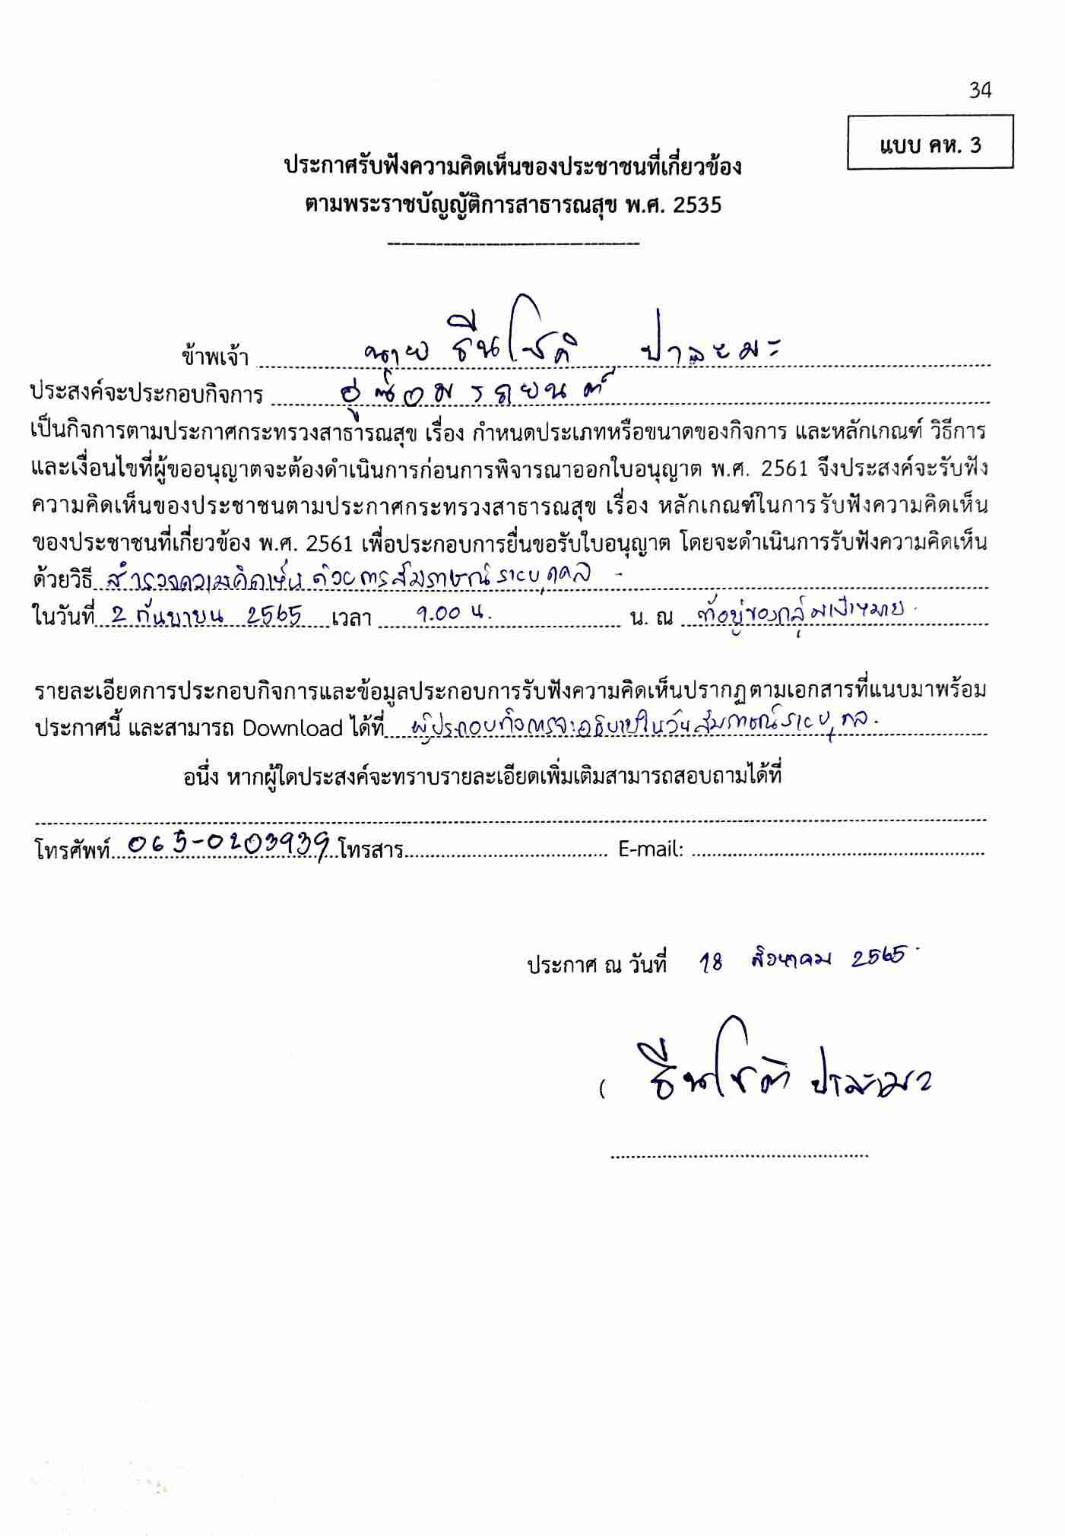 34
แบบ คห. 3
ประกาศรับฟังความคิดเห็นของประชาชนที่เกี่ยวข้อง
ตามพระราชบัญญัติการสาธารณสุข พ.ศ. 2535
ข้าพเจ้า นาย ธีนโชติ
ประสงค์จะประกอบกิจการ อู่ซ่อมรถยนต์
เป็นกิจการตามประกาศกระทรวงสาธารณสุข เรื่อง กำหนดประเภทหรือขนาดของกิจการ และหลักเกณฑ์ วิธีการ
และเงื่อนไขที่ผู้ขออนุญาตจะต้องดำเนินการก่อนการพิจารณาออกใบอนุญาต พ.ศ. 2561 จึงประสงค์จะรับฟัง
ความคิดเห็นของประชาชนตามประกาศกระทรวงสาธารณสุข เรื่อง หลักเกณฑ์ในการรับฟังความคิดเห็น
ของประชาชนที่เกี่ยวข้อง พ.ศ. 2561 เพื่อประกอบการยื่นขอรับใบอนุญาต โดยจะดำเนินการรับฟังความคิดเห็น
ด้วยวิธี สำรวจความคิดเห็น ด้วยการสัมภาษณ์รายบุคคล
ในวันที่ 2 กันยายน 2565 เวลา 9.00 น. น. ณ ที่อยู่ของกลุ่มเป้าหมาย
รายละเอียดการประกอบกิจการและข้อมูลประกอบการรับฟังความคิดเห็นปรากฏตามเอกสารที่แนบมาพร้อม
ประกาศนี้ และสามารถ Download ได้ที่ ผู้ประกอบกิจการจะอธิบายในวันสัมภาษณ์รายบุคคล.
อนึ่ง หากผู้ใดประสงค์จะทราบรายละเอียดเพิ่มเติมสามารถสอบถามได้ที่
โทรศัพท์ 065-0203939 โทรสาร E-mail:
ประกาศ ณ วันที่ 18 สิงหาคม 2565
( ธีนโชติ